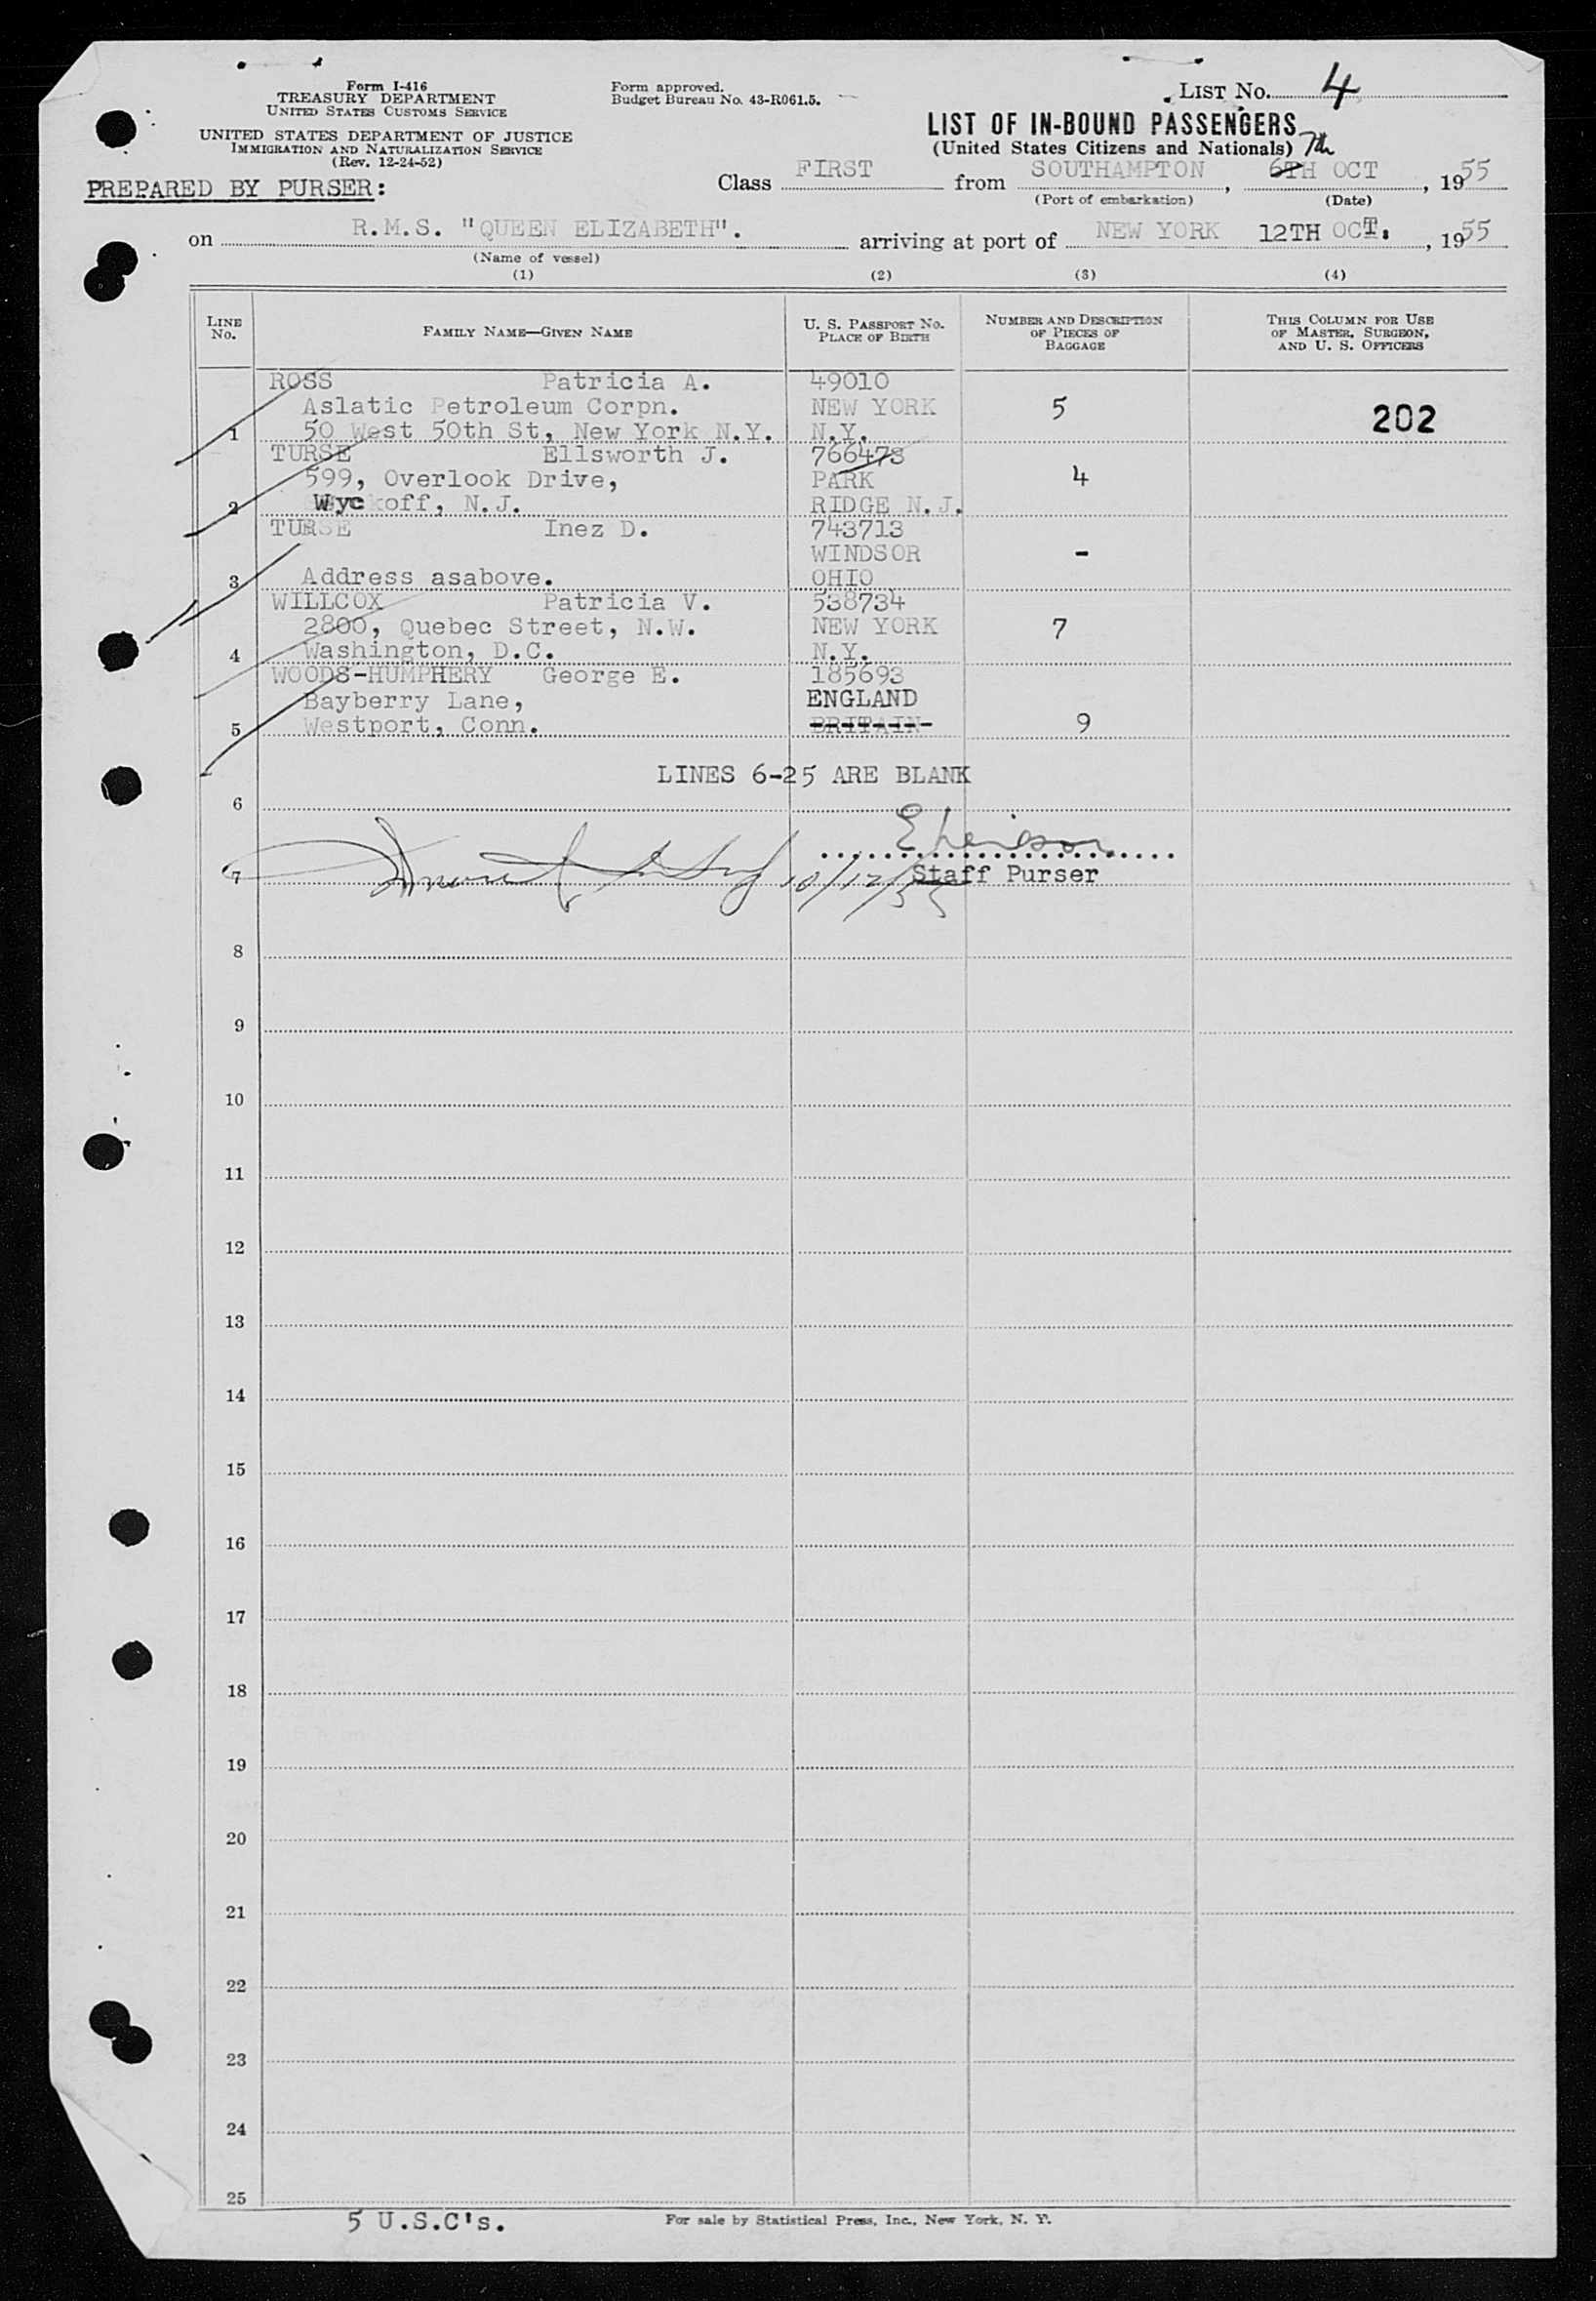 Form I-416
TREASURY DEPARTMENT
UNITED STATES CUSTOMS SERVICE
UNITED STATES DEPARTMENT OF JUSTICE
IMMIGRATION AND NATURALIZATION SERVICE
(Rev. 12-24-52)
Form approved.
Budget Bureau No. 43-R061.5.
LIST No. 4
LIST OF IN-BOUND PASSENGERS
(United States Citizens and Nationals) 7th
PREPARED BY PURSER:
Class FIRST from SOUTHAMPTON, 6TH OCT, 1955
(Port of embarkation) (Date)
on R.M.S. "QUEEN ELIZABETH". arriving at port of NEW YORK 12TH OCT., 1955
(Name of vessel)
(1) (2) (3) (4)
LINE No. FAMILY NAME—GIVEN NAME U. S. PASSPORT No. PLACE OF BIRTH NUMBER AND DESCRIPTION OF PIECES OF BAGGAGE THIS COLUMN FOR USE OF MASTER, SURGEON, AND U. S. OFFICERS
ROSS Patricia A. 49010
Aslatic Petroleum Corpn. NEW YORK 5 202
1 50 West 50th St, New York N.Y. N.Y.
TURSE Ellsworth J. 766478
599, Overlook Drive, PARK 4
2 Wyckoff, N.J. RIDGE N.J.
TURSE Inez D. 743713
WINDSOR -
3 Address asabove. OHIO
WILLCOX Patricia V. 538734
2800, Quebec Street, N.W. NEW YORK 7
4 Washington, D.C. N.Y.
WOODS-HUMPHERY George E. 185693
Bayberry Lane, ENGLAND
5 Westport, Conn. BRITAIN 9
LINES 6-25 ARE BLANK
6
7 10/12/55 Staff Purser
8
9
10
11
12
13
14
15
16
17
18
19
20
21
22
23
24
25
5 U.S.C's.
For sale by Statistical Press, Inc., New York, N. Y.